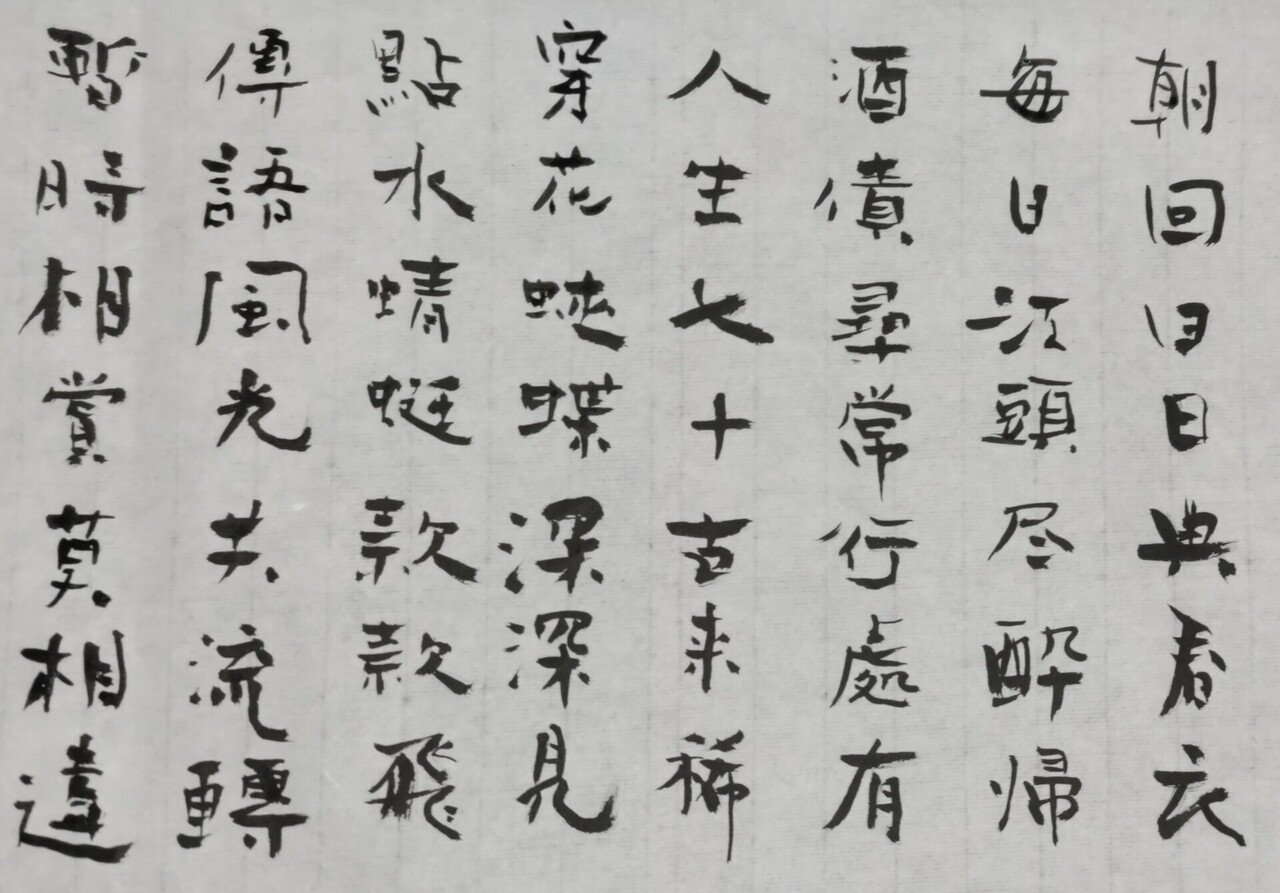 朝回日日典春衣
毎日江頭尽醉帰
酒債尋常行處有
人生七十古来稀
穿花蛺蝶深深見
點水蜻蜓款款飛
傳語風光共流轉
暫時相賞莫相遺